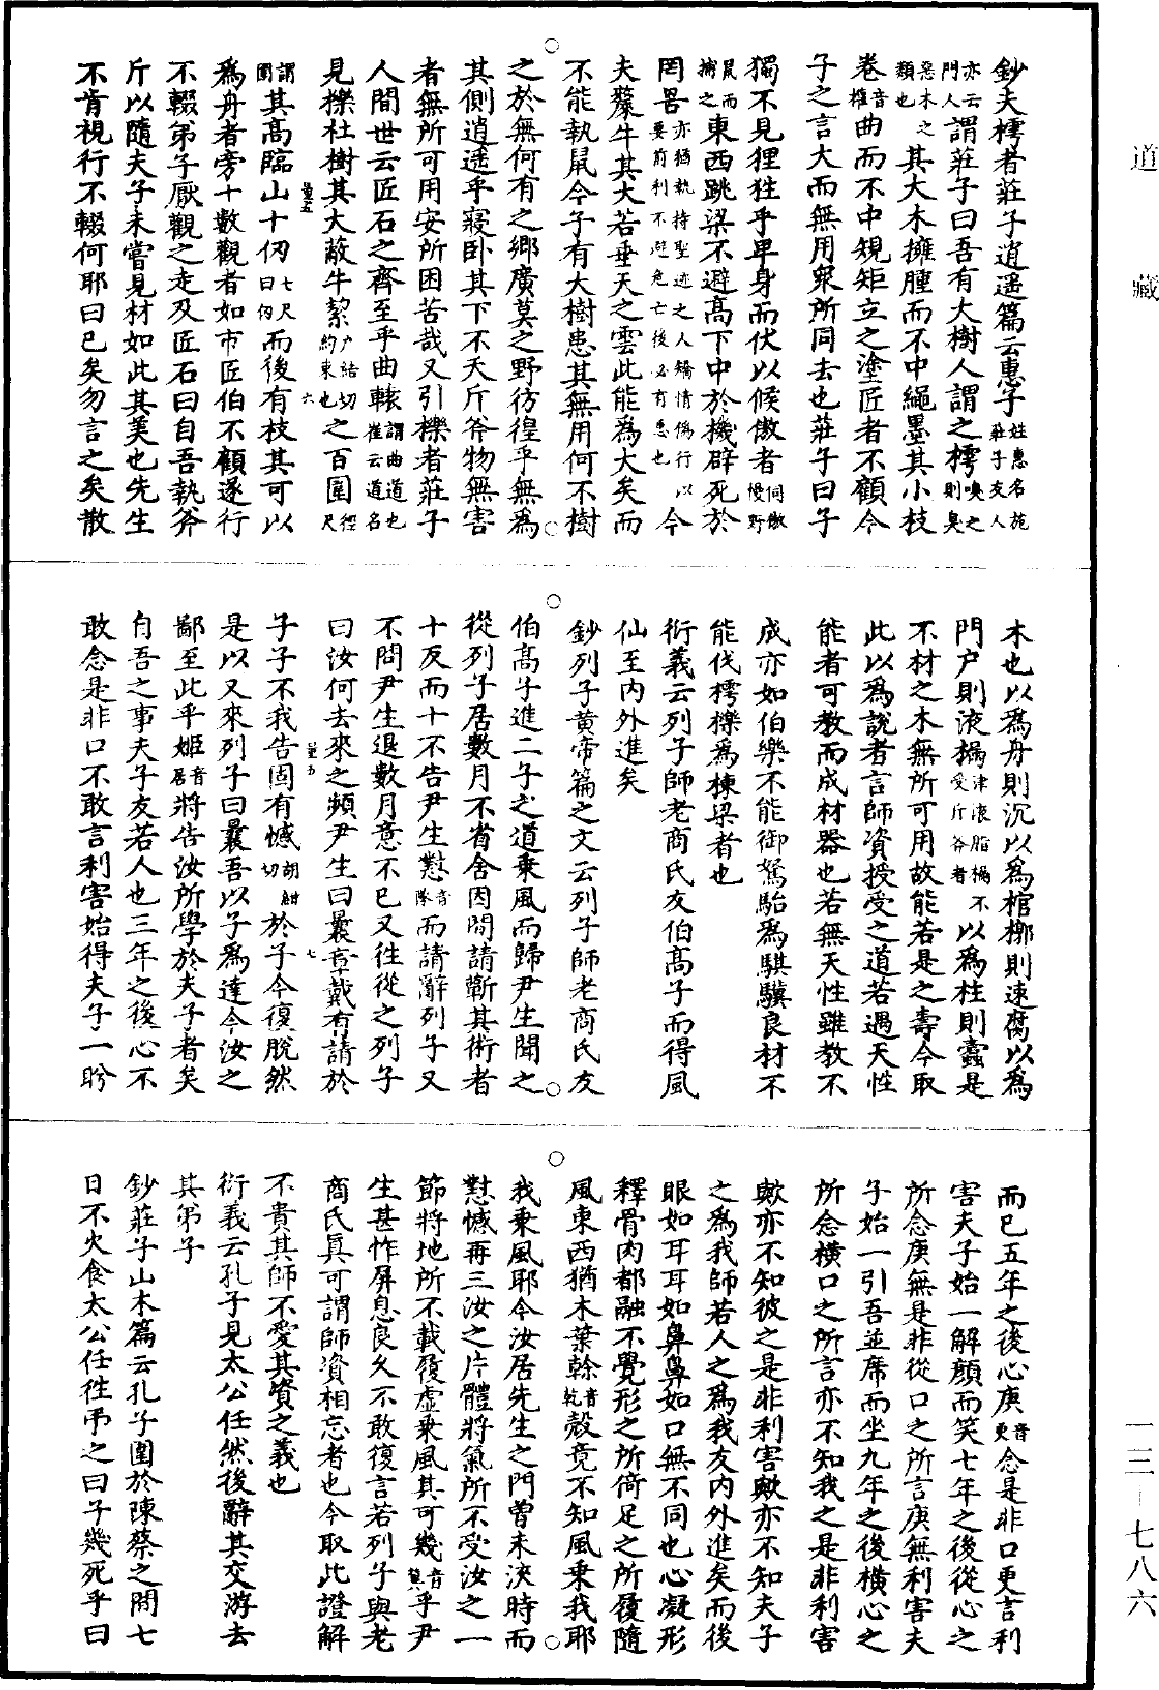 道藏
一三—七八六
鈔夫樗者莊子逍遥篇云惠子姓惠名施莊子友人
亦云門人謂莊子曰吾有大樹人謂之樗嗅之則臭
惡木之類也其大木擁腫而不中繩墨其小枝
卷音權曲而不中規矩立之塗匠者不顧今
子之言大而無用衆所同去也莊子曰子
獨不見狸狌乎卑身而伏以候傲者伺傲慢野
鼠而捕之東西跳梁不避髙下中於機辟死於
罔罟亦猶執持聖迹之人矯情僞行以要前利不避危亡後必有患也今
夫斄牛其大若垂天之雲此能爲大矣而
不能執鼠今子有大樹患其無用何不樹
之於無何有之郷廣莫之野彷徨乎無爲
其側逍遥乎寢卧其下不夭斤斧物無害
者無所可用安所困苦哉又引櫟者莊子
人間世云匠石之齊至乎曲轅謂曲道也崔云道名
見櫟社樹其大蔽牛絜户結切約束也之百圍徑尺
謂圍其髙臨山十仞七尺曰仞而後有枝其可以
爲舟者旁十數觀者如市匠伯不顧遂行
不輟弟子厭觀之走及匠石曰自吾執斧
斤以隨夫子未嘗見材如此其美也先生
不肯視行不輟何耶曰已矣勿言之矣散
木也以爲舟則沉以爲棺槨則速腐以爲
門户則液樠津液脂樠不受斤斧者以爲柱則蠹是
不材之木無所可用故能若是之壽今取
此以爲說者言師資授受之道若遇天性
能者可教而成材器也若無天性雖教不
成亦如伯樂不能御駑駘爲騏驥良材不
能伐樗櫟爲棟梁者也
衍義云列子師老商氏友伯髙子而得風
仙至内外進矣
鈔列子黄帝篇之文云列子師老商氏友
伯髙子進二子之道乘風而歸尹生聞之
從列子居數月不省舍因間請蘄其術者
十反而十不告尹生懟音隊而請辭列子又
不問尹生退數月意不已又往從之列子
曰汝何去來之頻尹生曰曩章戴有請於
子子不我告固有憾胡紺切於子今復脱然
是以又來列子曰曩吾以子爲達今汝之
鄙至此乎姬音居將告汝所學於夫子者矣
自吾之事夫子友若人也三年之後心不
敢念是非口不敢言利害始得夫子一眄
而已五年之後心庚音更念是非口更言利
害夫子始一解顔而笑七年之後從心之
所念庚無是非從口之所言庚無利害夫
子始一引吾並席而坐九年之後橫心之
所念橫口之所言亦不知我之是非利害
歟亦不知彼之是非利害歟亦不知夫子
之爲我師若人之爲我友内外進矣而後
眼如耳耳如鼻鼻如口無不同也心凝形
釋骨肉都融不覺形之所倚足之所履隨
風東西猶木葉幹音乾殼竟不知風乘我耶
我乘風耶今汝居先生之門曾未浹時而
懟憾再三汝之片體將氣所不受汝之一
節將地所不載履虚乘風其可幾音冀乎尹
生甚怍屏息良久不敢復言若列子與老
商氏真可謂師資相忘者也今取此證解
不貴其師不愛其資之義也
衍義云孔子見太公任然後辭其交游去
其弟子
鈔莊子山木篇云孔子圍於陳蔡之間七
日不火食太公任徃弔之曰子幾死乎曰